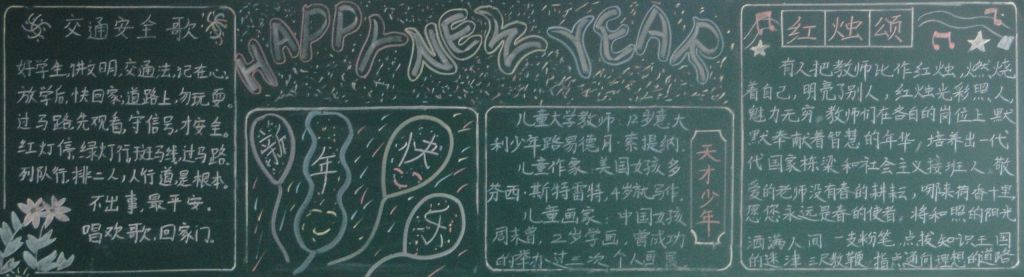 交通安全歌
好学生,讲文明,交通法,记在心。
放学后,快回家,道路上,勿玩耍。
过马路,先观看,守信号,才安全。
红灯停,绿灯行,斑马线,过马路。
列队行,排二人,人行道,是根本。
不出事,最平安。
唱欢歌,回家门。
HAPPY NEW YEAR
新
年
快
乐
儿童大学教师:12岁意大
利少年路易德·月·索提纳;
儿童作家:美国女孩多
芬西·斯特雷特,4岁就写作.
儿童画家:中国女孩
周末肯,2岁学画,曾成功
的举办过三次个人画展
天才少年
红烛颂
有人把教师比作红烛,燃烧
着自己,明亮了别人,红烛光彩照人
魅力无穷。教师们在各自的岗位上,默
默奉献着智慧的年华,培养出一代
代国家栋梁和社会主义接班人。敬
爱的老师没有春的耕耘,哪来荷香十里
愿您永远是春的使者,将和照的阳光
洒满人间 一支粉笔,点拨知识王国
的迷津 三尺教鞭 指点通向理想的道路